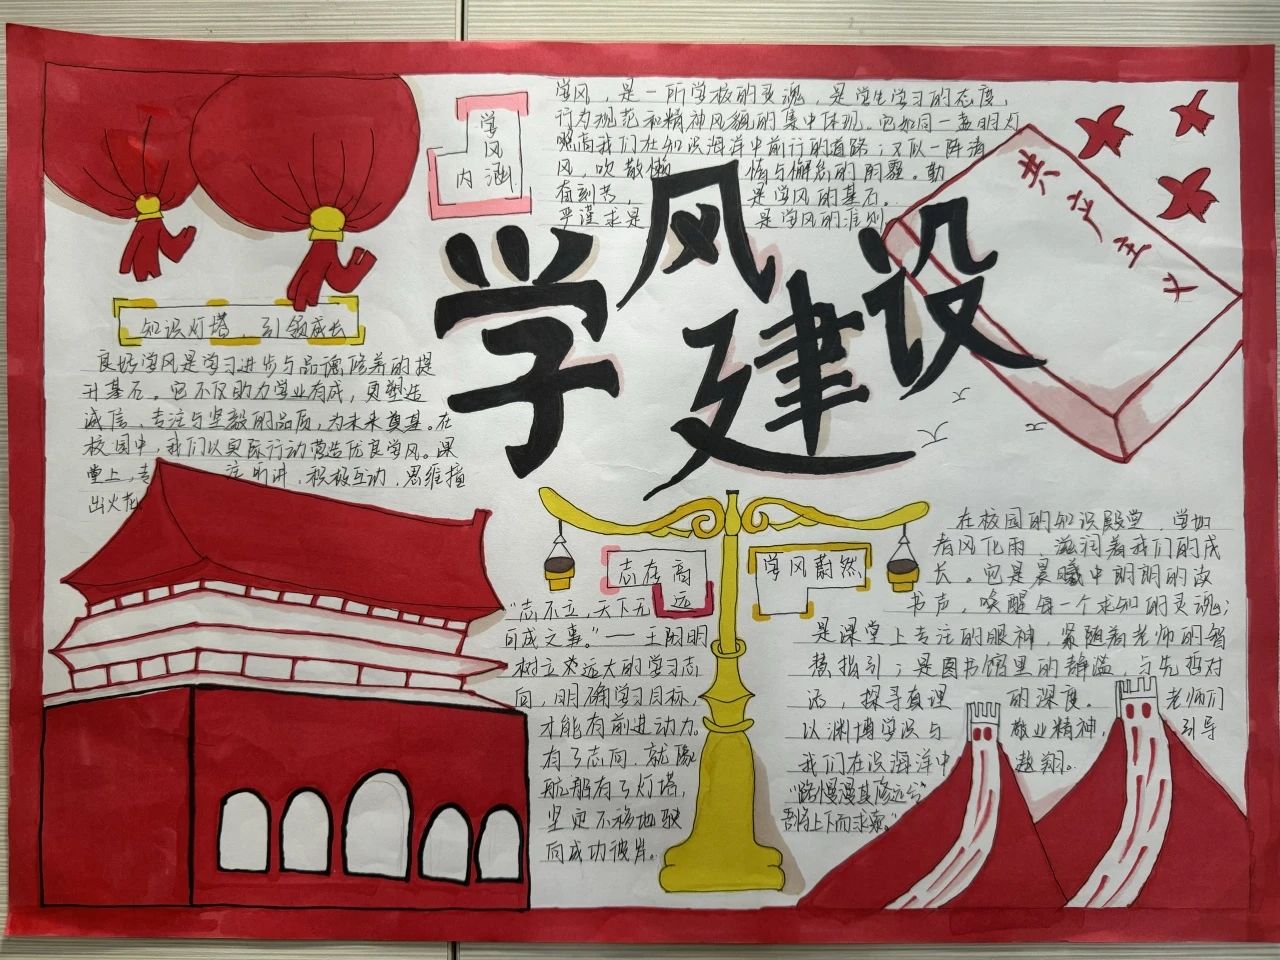 学风建设
学风
内涵
学风，是一所学校的灵魂，是学生学习的态度、
行为规范和精神风貌的集中体现。它如同一盏明灯
照亮我们在知识海洋中前行的道路；又似一阵清
风，吹散懒惰与懈怠的阴霾。勤
奋刻苦，是学风的基石。
严谨求是是学风的准则
共产主义
知识灯塔，引领成长
良好学风是学习进步与品德修养的提
升基石。它不仅助力学业有成，更塑造
诚信、专注与坚毅的品质，为未来奠基。在
校园中，我们以实际行动营造优良学风。课
堂上，专注听讲，积极互动，思维撞
出火花
志存高
远
"志不立，天下无
可成之事。"——王阳明
树立远大的学习志
向，明确学习目标，
才能有前进动力。
有了志向，就像
航船有了灯塔，
坚定不移地驶
向成功彼岸。
学风蔚然
在校园的知识殿堂，学如
春风化雨，滋润着我们的成
长。它是晨曦中朗朗的读
书声，唤醒每一个求知的灵魂；
是课堂上专注的眼神，紧随着老师的智
慧指引；是图书馆里的静谧，与先哲对
话，探寻真理的深度。老师们
以渊博学识与敬业精神，引导
我们在识海洋中遨翔。
"路慢漫其修远兮
吾将上下而求索。"